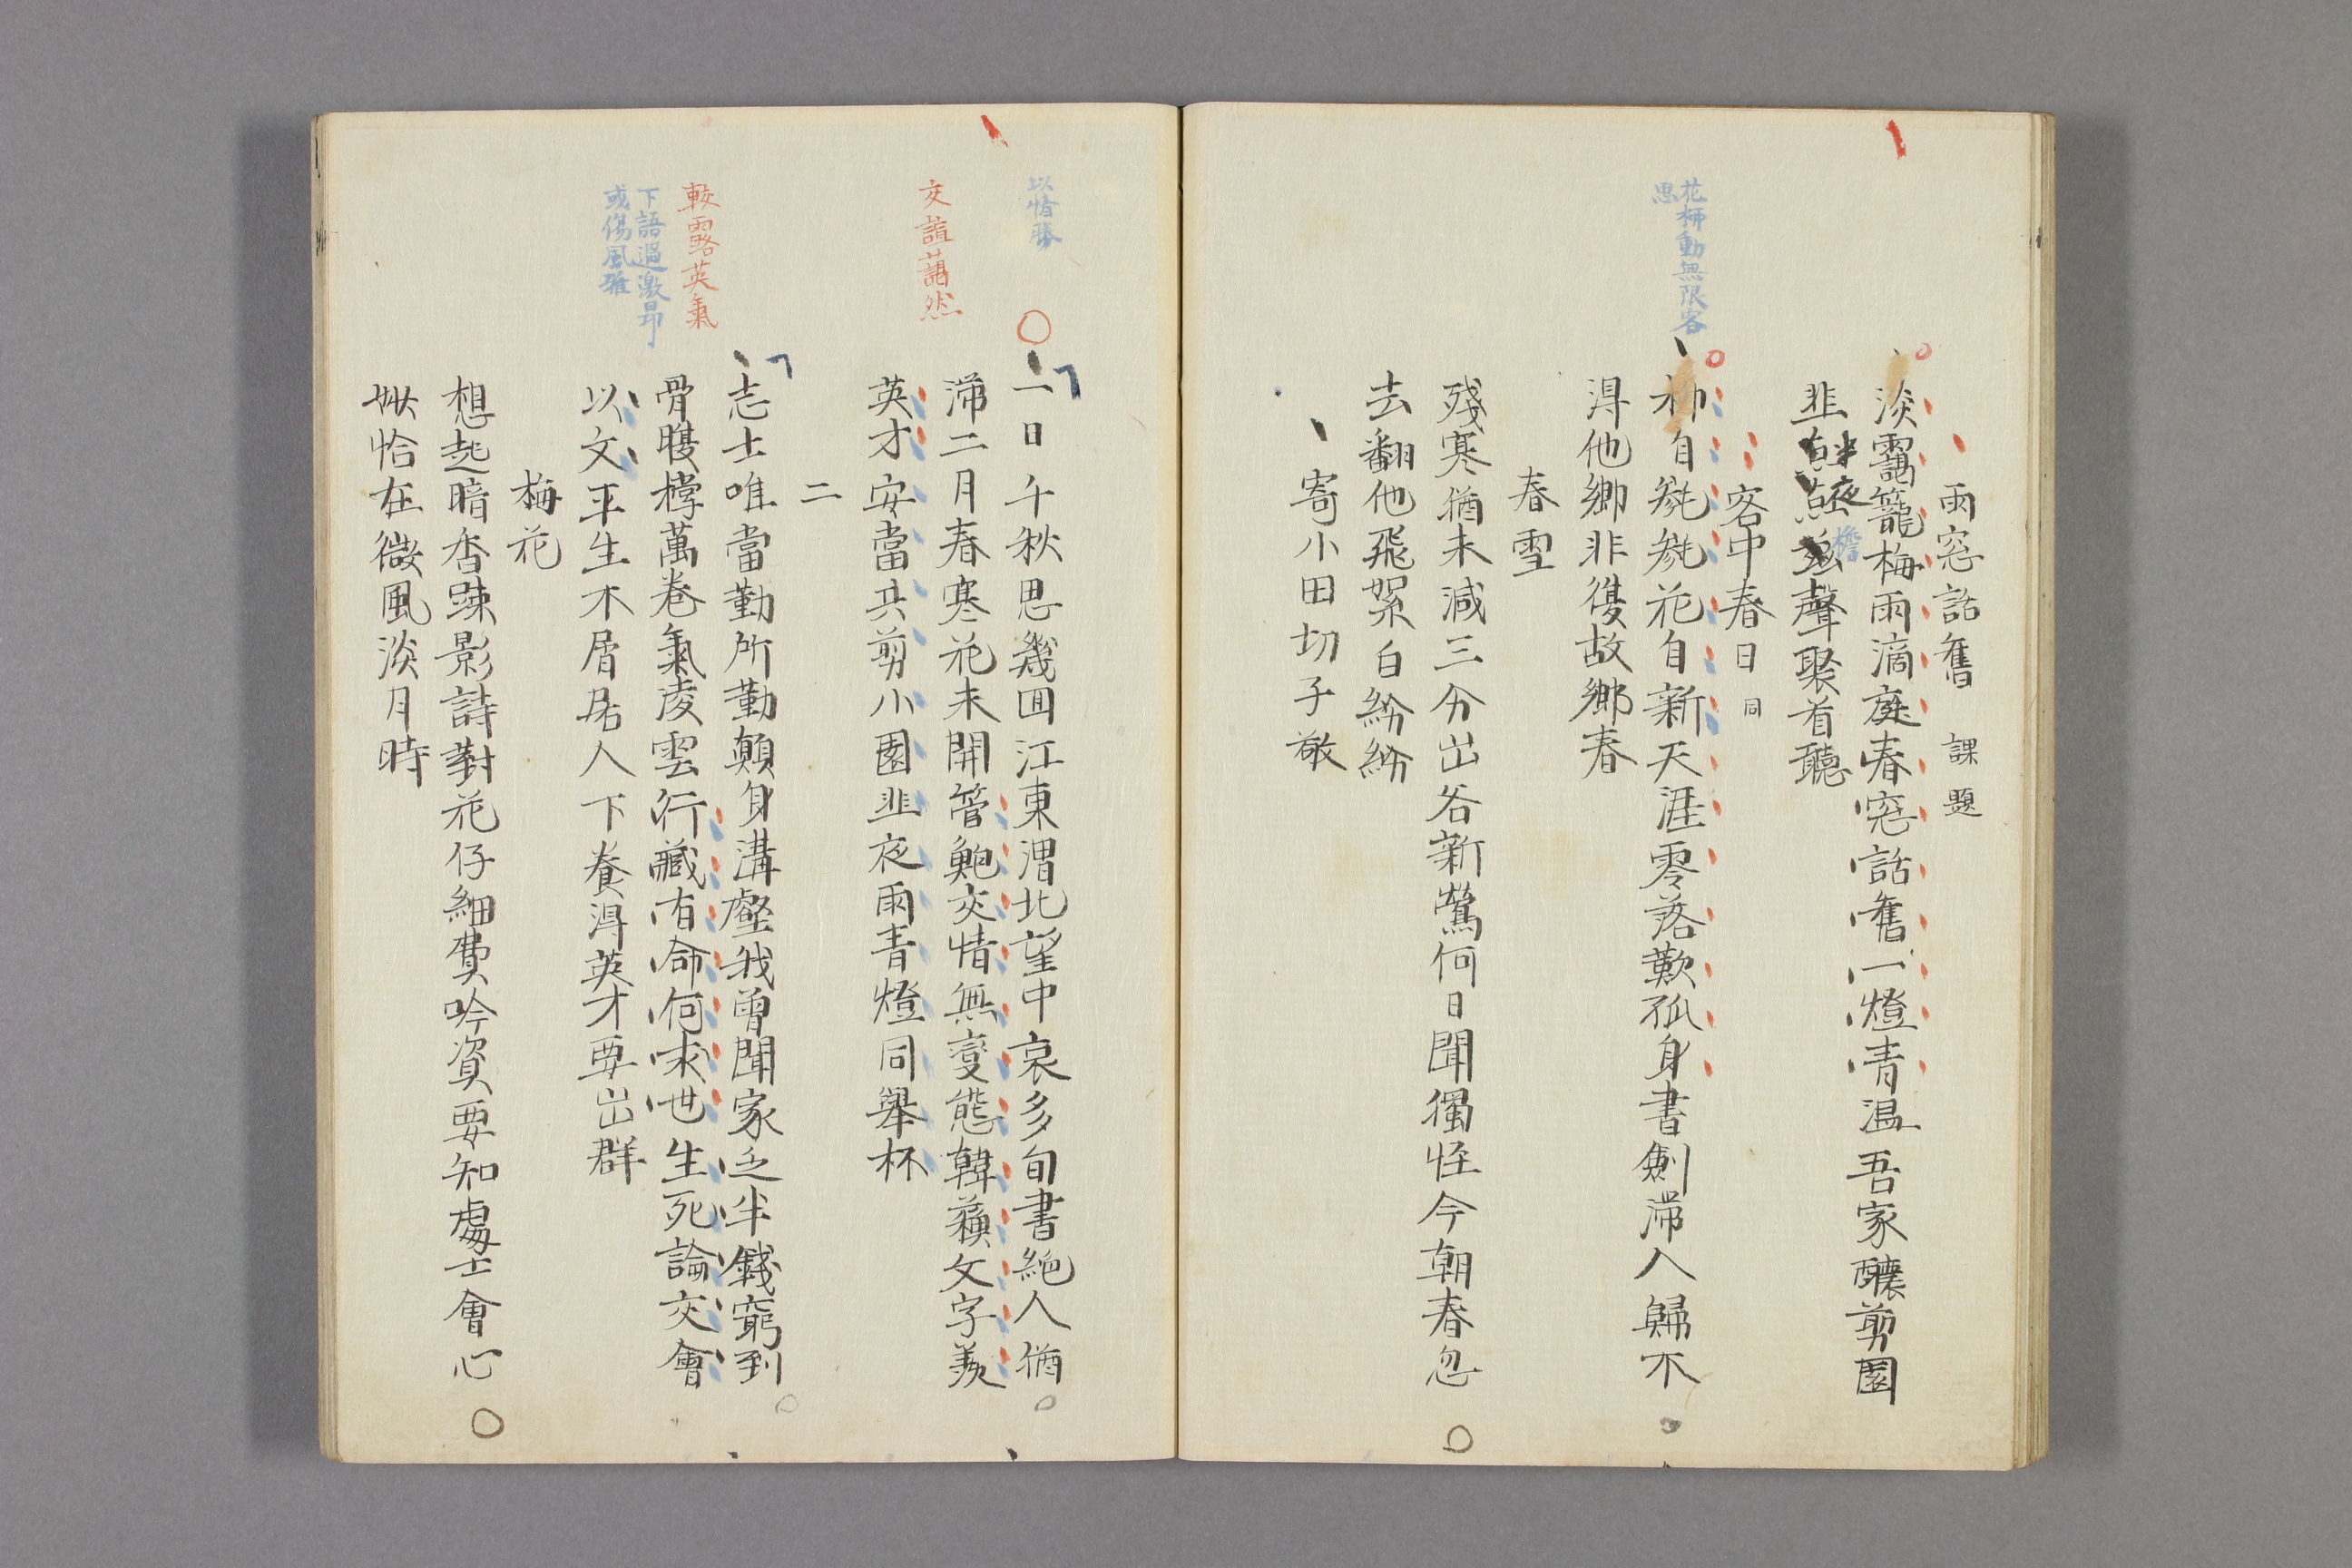 雨窓話舊 課題
淡靄籠梅雨滴庭春窓話舊一燈青温吾家釀剪園
韭半夜簷聲聚首聽
花柳動無限客
思
客中春日 同
柳自毿毿花自新天涯零落歎孤身書劍滞人歸不
得他郷非復故郷春
春雪
殘寒猶未減三分出谷新鶯何日聞獨怪今朝春忽
去翻他飛絮白紛紛
寄小田切子敬
以情勝
一日千秋思幾回江東渭北望中哀多旬書絶人猶
滞二月春寒花未開管鮑交情無變態韓蘓文字羨
交誼藹然
英才安當共剪小園韭夜雨青燈同舉杯
二
較露英氣
志士唯當勤所勤顛身溝壑我曾聞家乏半錢窮到
骨腹撑萬巻氣凌雲行藏有命何求世生死論交會
下語過激昂
或傷風雅
以文平生不屑居人下養得英才要出群
梅花
想起暗香踈影詩對花仔細費吟資要知處士會心
娯恰在微風淡月時